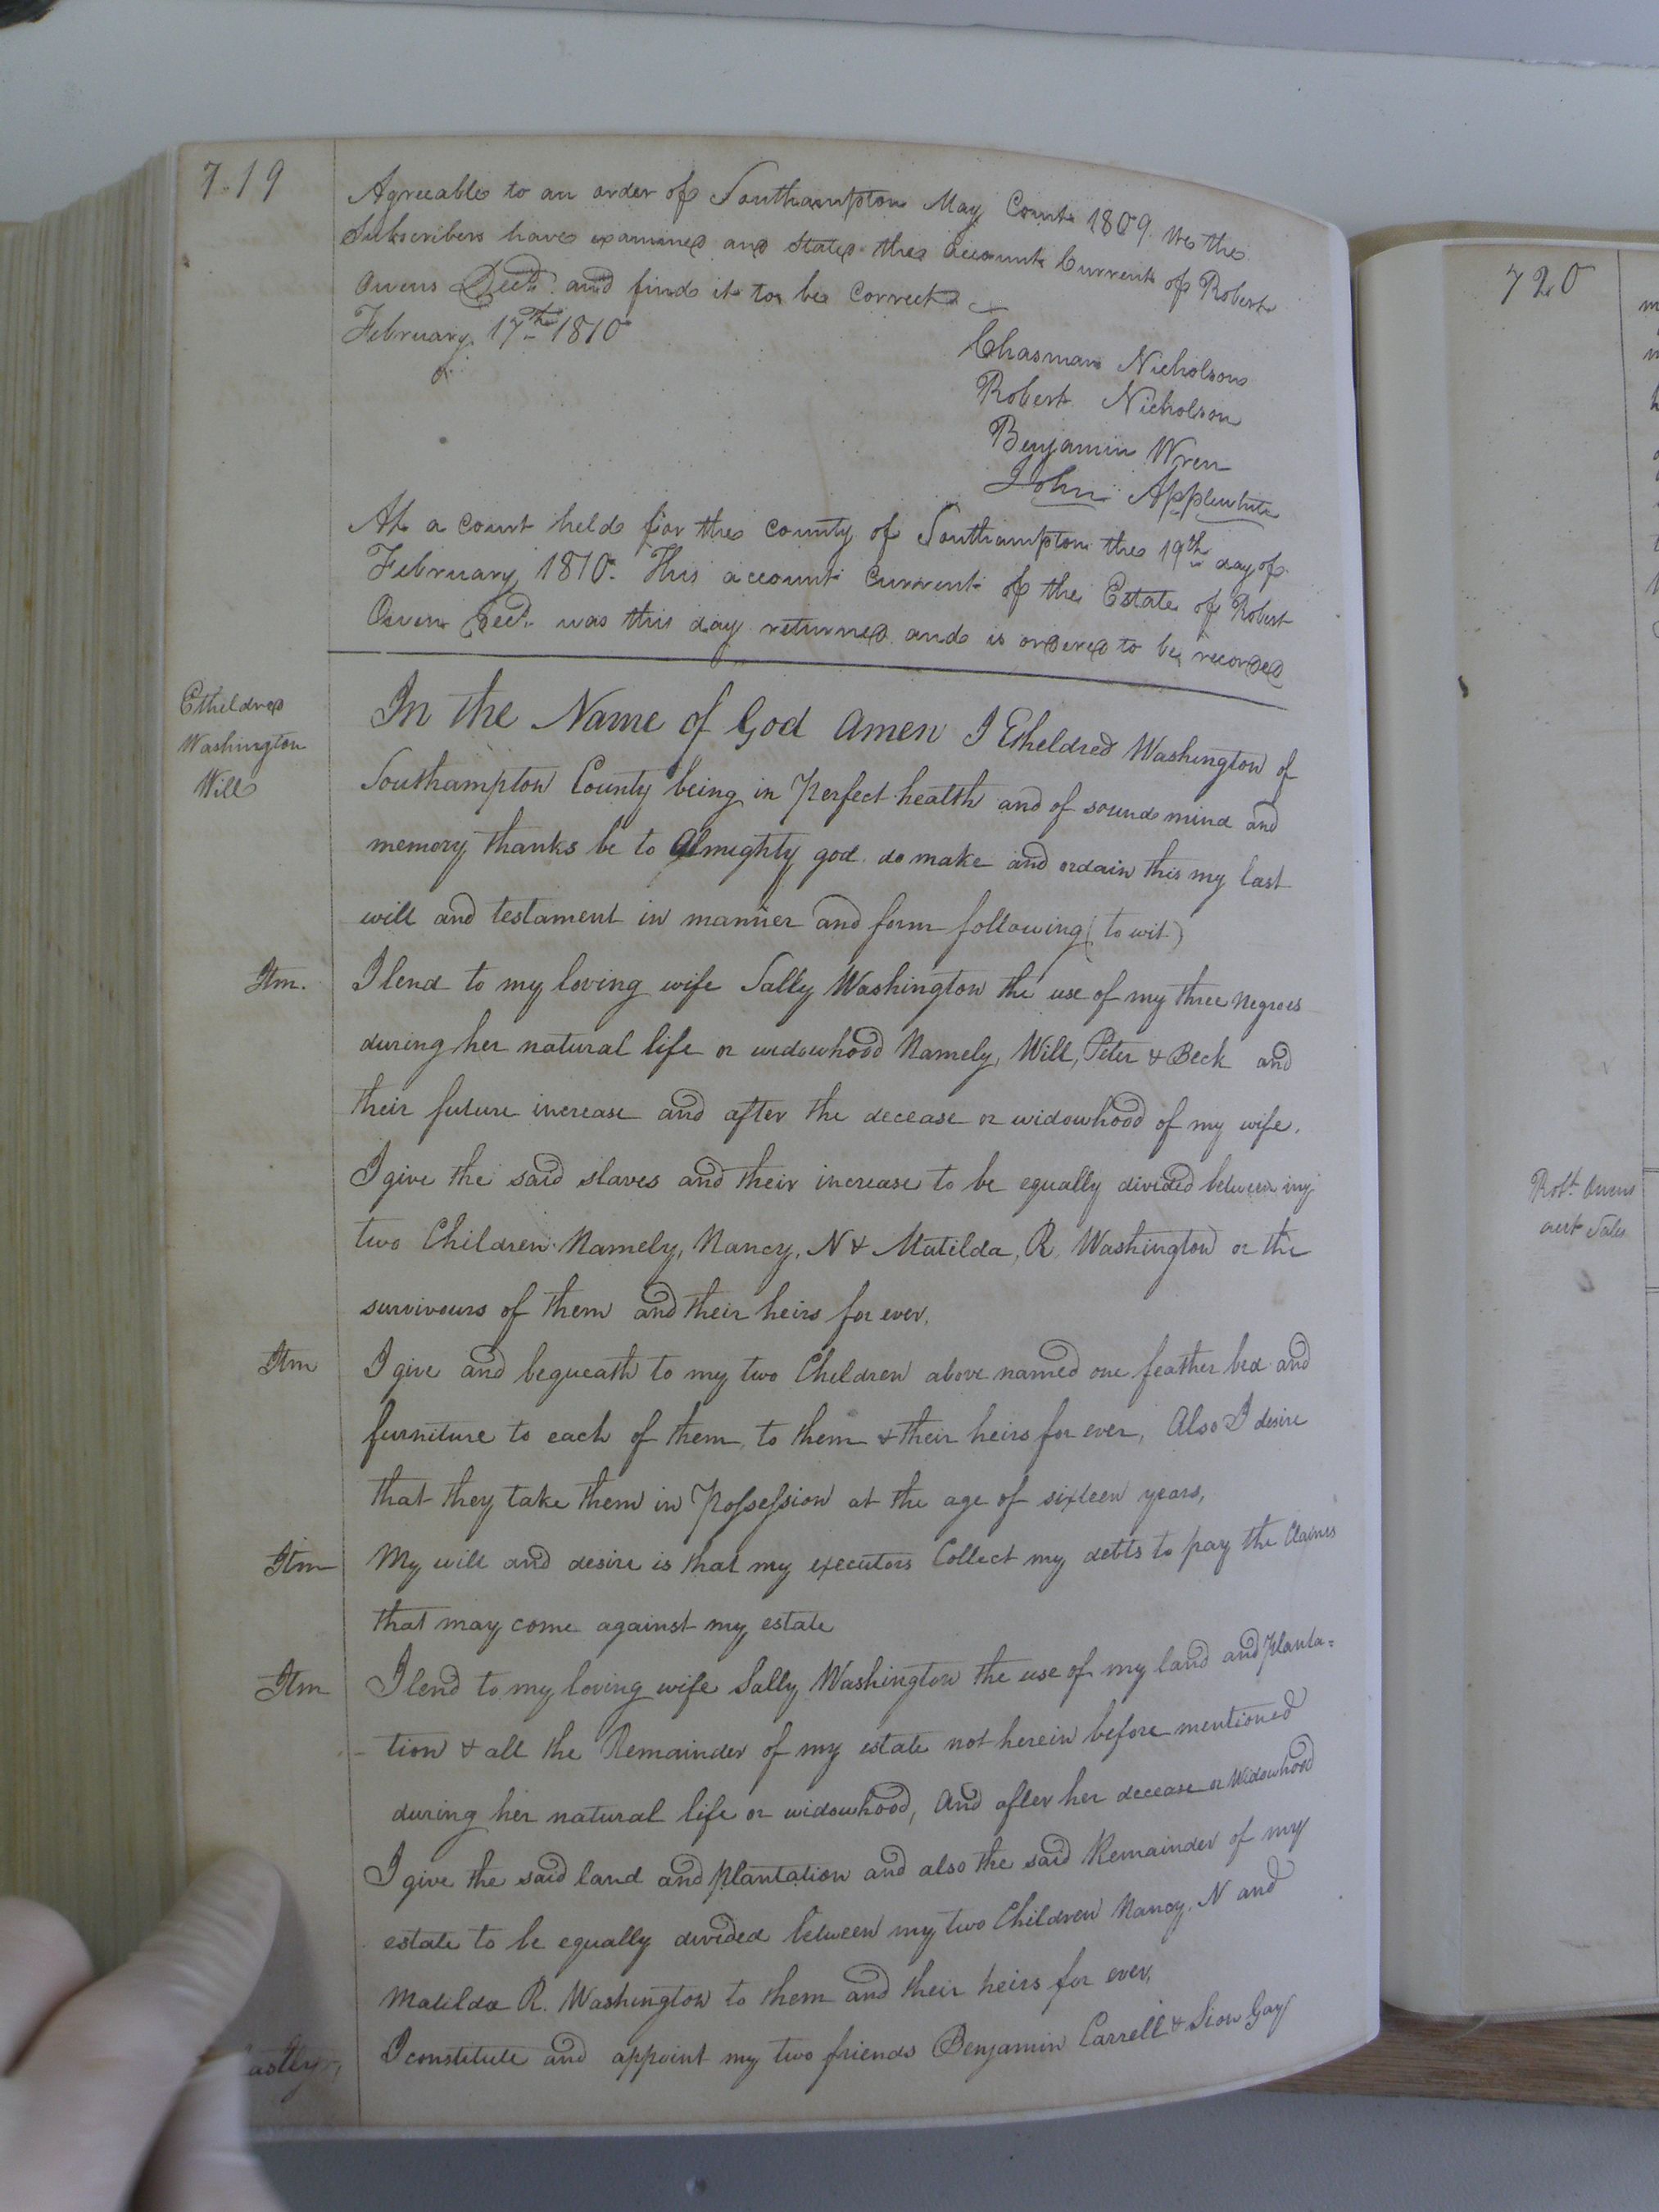 719
Agreeable to an order of Southampton May Court 1809 we the
Subscribers have examined and stated the account Current of Robert
Owens Decd. and find it to be Correct
February 17th 1810
Chasman Nicholson
Robert Nicholson
Benjamin Wren
John Applewhite
At a court held for the county of Southampton the 19th day of
February 1810. This account Current of the Estate of Robert
Owens Decd. was this day returned and is ordered to be recorded
Etheldred
Washington
Will
In the Name of God Amen I Etheldred Washington of
Southampton County being in Perfect health and of sound mind and
memory thanks be to Almighty god do make and ordain this my last
will and testament in manner and form following (to wit)
Itm. I lend to my loving wife Sally Washington the use of my three Negroes
during her natural life or widowhood Namely, Will, Peter & Beck and
their future increase and after the decease or widowhood of my wife.
I give the said slaves and their increase to be equally divided between my
two Children Namely, Nancy, N & Matilda, R, Washington or the
survivours of them and their heirs for ever,
Itm I give and bequeath to my two Children above named one feather bed and
furniture to each of them, to them & their heirs for ever, Also I desire
that they take them in Possession at the age of sixteen years,
Itm My will and desire is that my executors Collect my debts to pay the Claims
that may come against my estate
Itm I lend to my loving wife Sally Washington the use of my land and planta=
tion & all the Remainder of my estate not herein before mentioned
during her natural life or widowhood, And after her decease or Widowhood
I give the said land and plantation and also the said Remainder of my
estate to be equally divided between my two Children Nancy, N and
Matilda R. Washington to them and their heirs for ever,
astly, I constitute and appoint my two friends Benjamin Carrell & Sion Gay
720
Robt. Owens
acct Sales